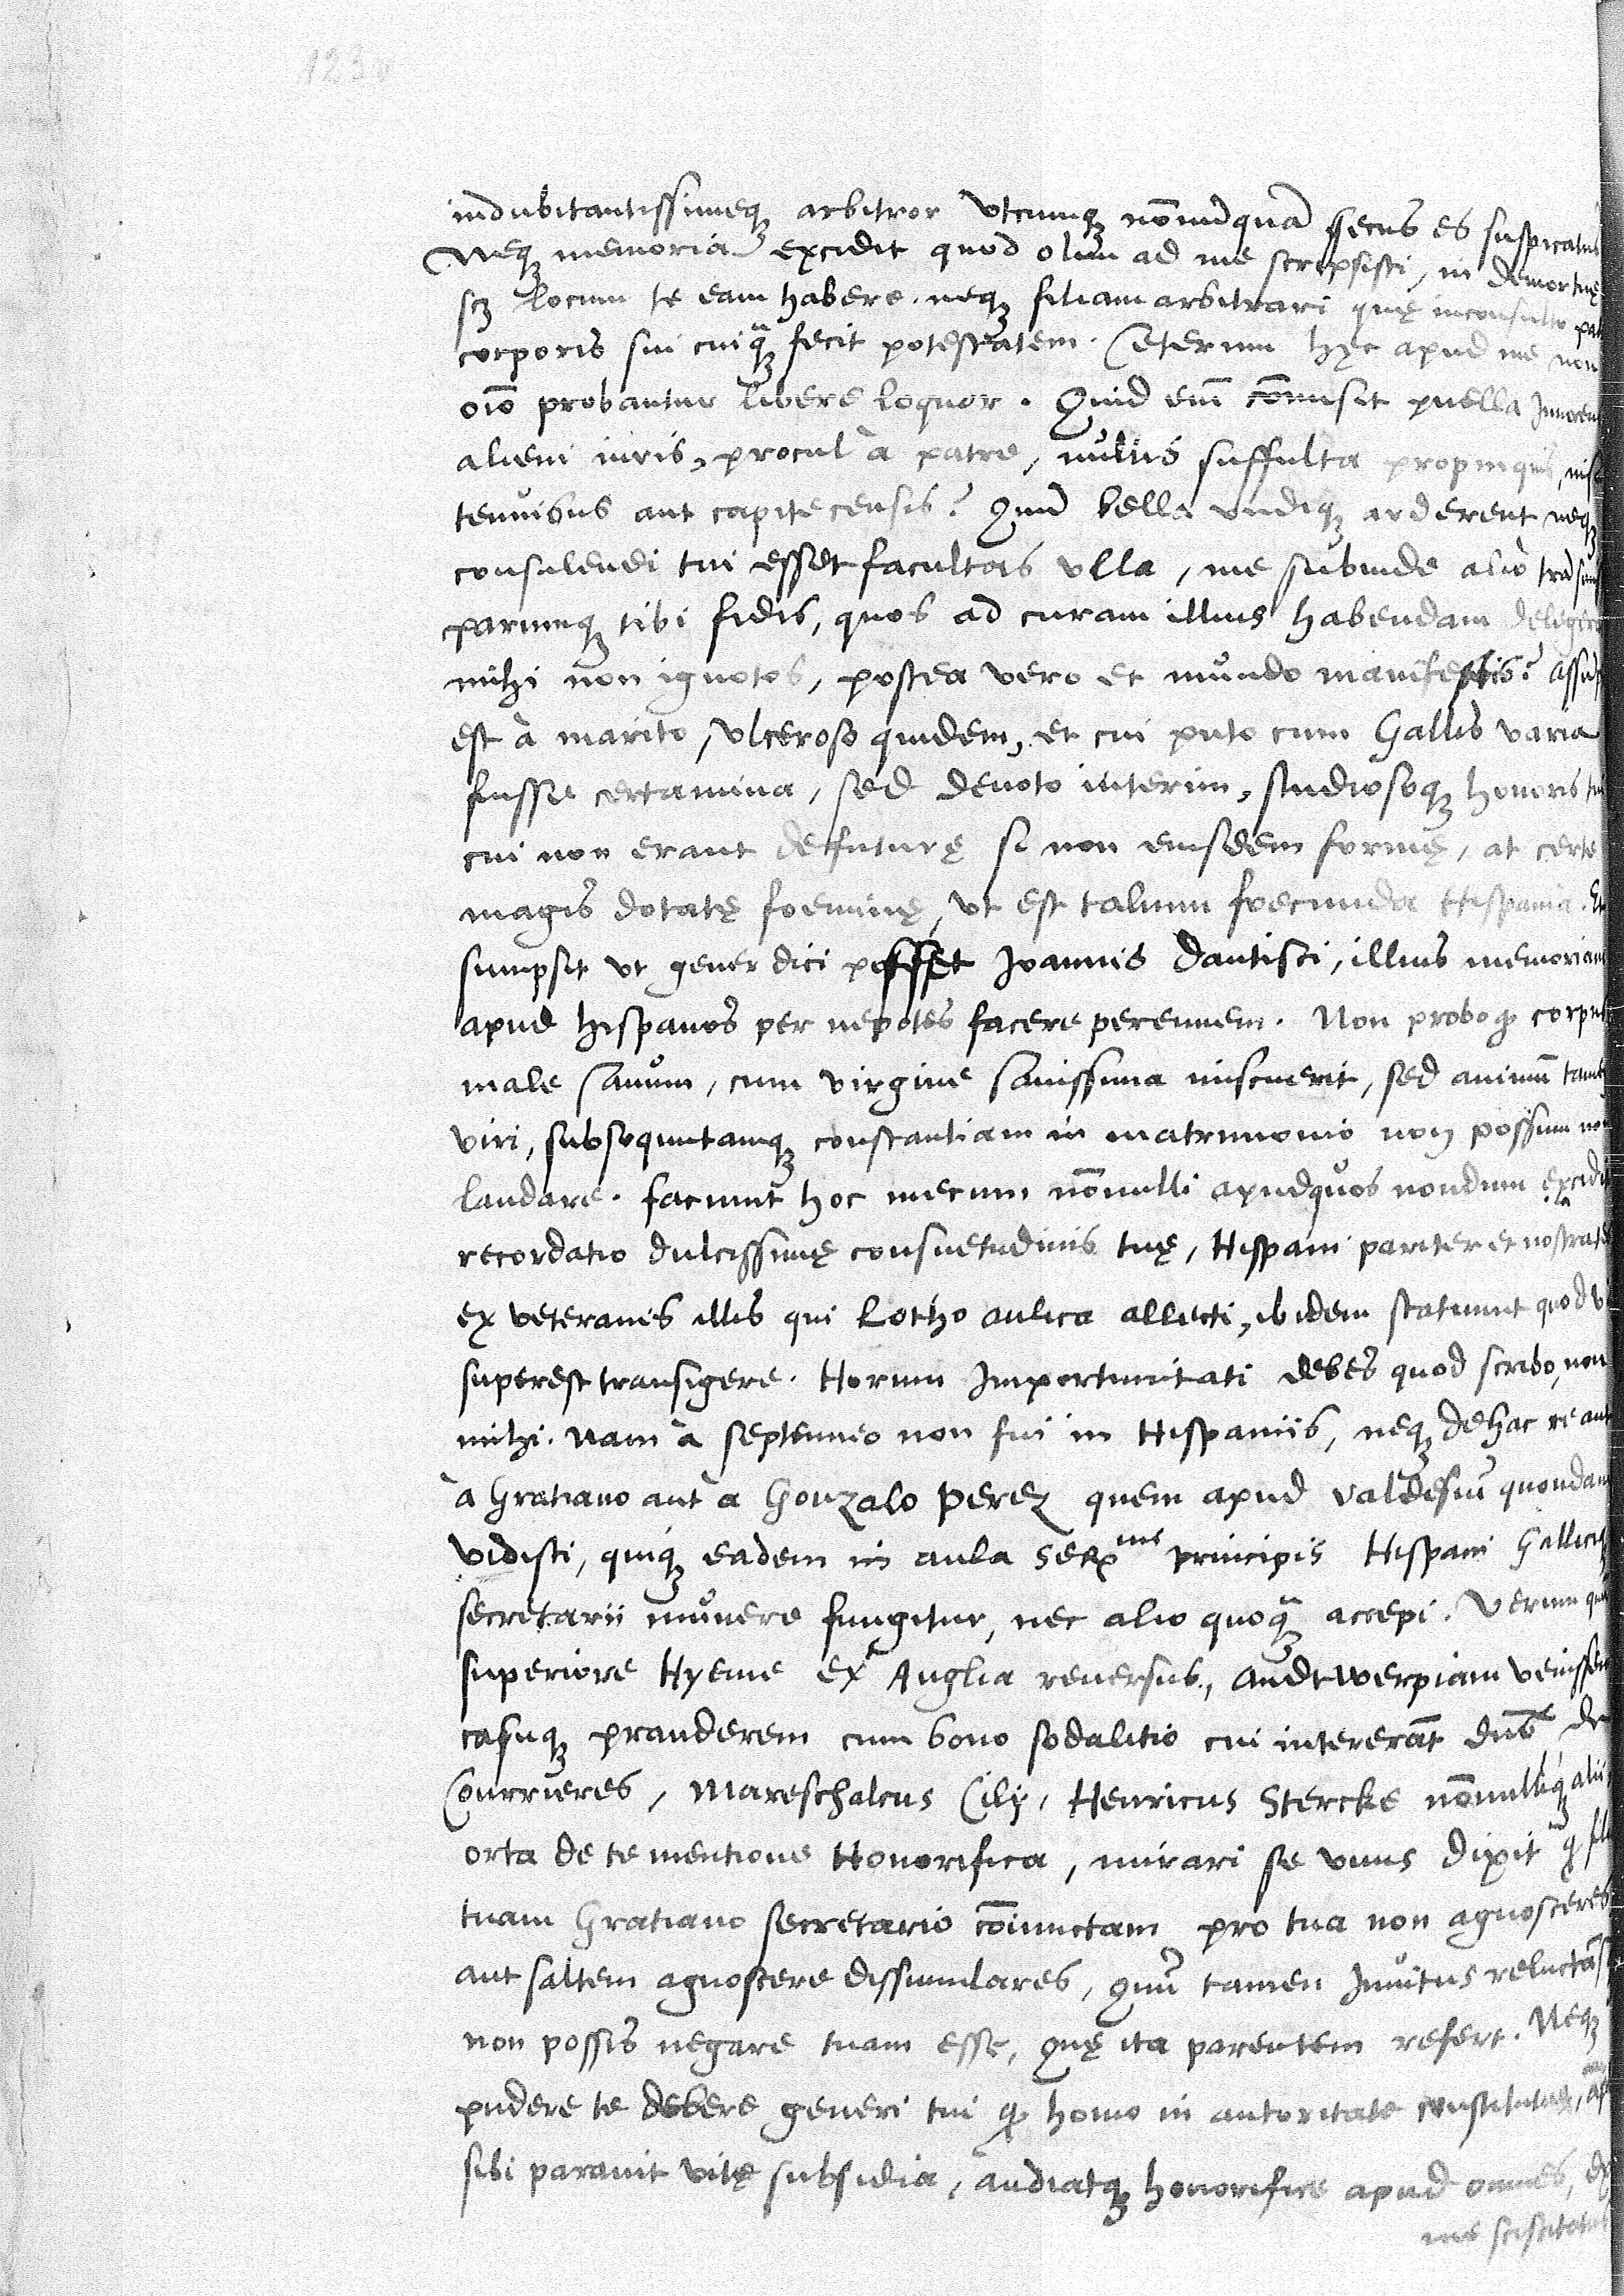 123v
indubitantissimeq(ue) arbitror utcumq(ue) nōnūquā secus es suspicatus
Neq(ue) memoria excidit quod olim ad me scripsisti, in demortuę
scz locum te eam habere. neq(ue) filiam arbitrari quę inconsulto pat
corporis sui cuiq̃ fecit potestatem. Ceterum hęc apud me non
oīo probantur libere loquor. Quid enī cōmisit puella Innocens
alieni iuris, procul à patre, nullis suffulta propinquis, nisi
tenuibus aut capitecensis? Quū bella undiq(ue) arderent neq(ue)
consulendi tui esset facultas ulla, me subinde aliò
parumq(ue) tibi fidis, quos ad curam illius habendam delegeras
mihi non ignotos, postea vero et mundo manifestis?
est à marito, ulceroso quidem, et cui puto cum Gallis varia
fuisse certamina, sed devoto interim, studiosoq(ue) honoris tui
cui non erant defuturę si non eiusdem formę, at certe
magis dotatę foeminę, ut est talium foecunda Hispania. Et
sumpsit ut gener dici posset Joannis Dantisci, illius memoriam
apud hispanos per nepotes facere perennem. Non probo q(uod) corpus
male sanum, cum virgine sanissima miscuerit, sed animū tam
viri, subsequutamq(ue) constantiam in matrimonio non possum non
laudare. faciunt hoc mecum nōnulli apudquos nondum excidit
recordatio dulcissimę consuetudinis tuę, Hispani pariter et nostrates
ex veteranis illis qui Lotho aulica allecti, ibidem statuunt quod
superest transigere. Horum Importunitati debes quod scribo, non
mihi. nam à septennio non fui in Hispaniis, neq(ue) de hac re aut
à Gratiano aut à Gonzalo Perez quem apud Valdesiū quondam
vidisti, quiq(ue) eadem in aula Ser(mi) principis Hispani
secretarii munere fungitur, nec alio quoq̃ accepi. Verum
superiore Hyeme ex Anglia reversus, Andtwerpiam venissem
casuq(ue) pranderem cum bono sodalitio cui intererāt dn̄s de
Courrieres, Mareschalcus Cilij, Henricus Stercke nōnulliq(ue) alii
orta de te mentione Honorifica, mirari se unus dixit q(uod)
tuam Gratiano secretario cōiunctam pro tua non agnosceres
aut saltem agnoscere dissimulares, quū tamen Invitus
non possis negare tuam esse, quę ita parentem refert. Neq(ue)
pudere te debere generi tui q(uod) homo in autoritate constitutus,
sibi paravit vitę subsidia, audiatq(ue) honorifice apud omnes,
me